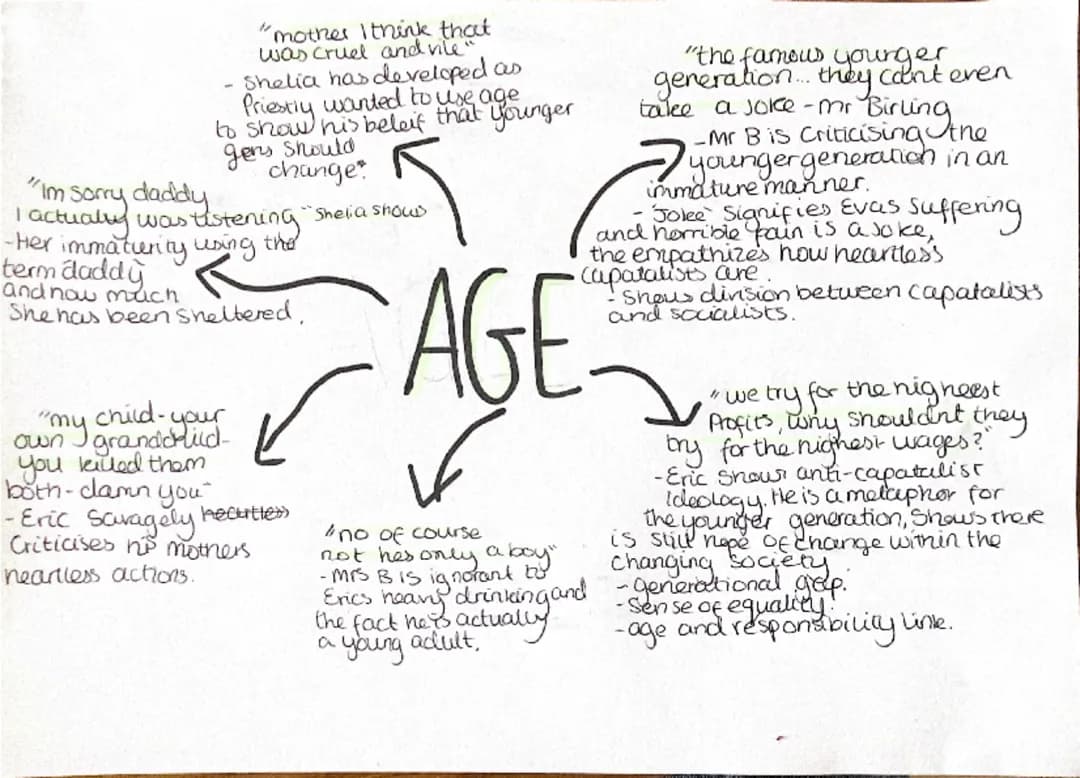 "mother I think that
was cruel and vile"
- Shelia has developed as
Priestly wanted to use age
to show his beleif that younger
gens should
change".
"the famous younger
generation... they cant even
take a joke - mr Birling
- Mr B is Criticising the
younger generation in an
immature manner.
- "Joke" signifies Evas suffering
and horrible pain is a joke,
the empathizes how heartless
capatalists are.
- Shows division between capatalists
and socialists.
"Im sorry daddy
I actually was listening" - Shelia shows
- Her immaturity using the
term daddy
and how much
She has been sheltered.
AGE
"my child - your
own grandchild -
you killed them
both - damn you"
- Eric Savagely heartless
Criticises his mothers
heartless actions.
"no of course
not hes only a boy"
- Mrs B is ignorant to
Erics heavy drinking and
the fact he's actually
a young adult.
"we try for the higheest
Profits, why shouldnt they
try for the highest wages?"
- Eric shows anti-capatalist
ideology. He is a metaphor for
the younger generation, Shows there
is still hope of change within the
changing society.
- generational gap.
- Sense of equality.
- age and responsibility link.